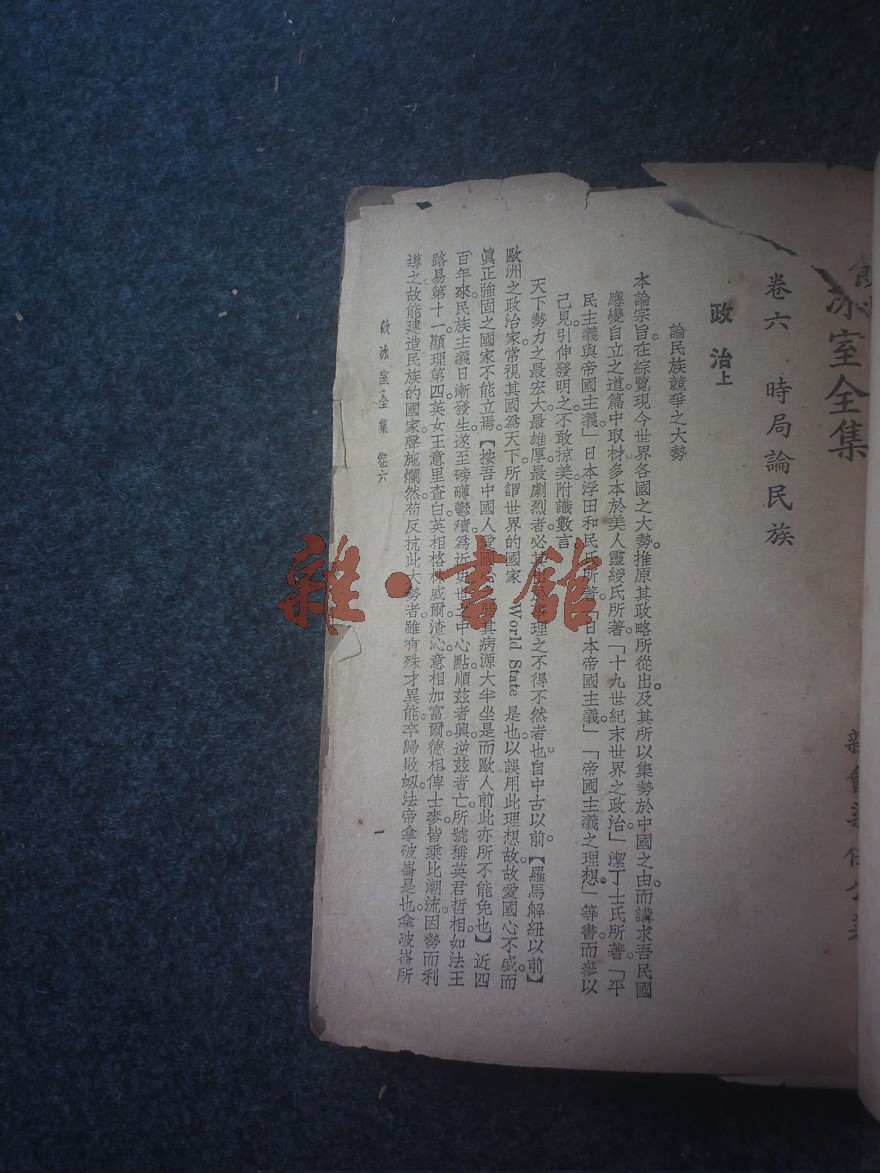 冰室全集
卷六 時局論民族
政治上
論民族競爭之大勢
本論宗旨在綜覽現今世界各國之大勢。推原其政略所從出。及其所以集勢於中國之由。而講求吾民國
應變自立之道。篇中取材多本於美人靈綬氏所著「十九世紀末世界之政治」潔丁士氏所著「平
民主義與帝國主義」日本浮田和民氏所著「日本帝國主義」「帝國主義之理想」等書。而參以
己見。引伸發明之。不敢掠美。附識數言
天下勢力之最宏大最雄厚最劇烈者。必 理之不得不然者也。自中古以前。【羅馬解紐以前】
歐洲之政治家。常視其國為天下。所謂世界的國家 World State 是也。以誤用此理想故。故愛國心不盛。而
眞正強固之國家不能立焉。【按吾中國人愛國心 其病源大半坐是而歐人前此亦所不能免也】近四
百年來。民族主義。日漸發生。遂至磅礴鬱積。為近 世 之中心點。順茲者興。逆茲者亡。所號稱英君哲相。如法王
路易第十一顯理第四。英女王意里查白。英相格林威爾渣沁。意相加富爾。德相俾士麥。皆乘比潮流。因勢而利
導之。故能建造民族的國家。聲施爛然。苟反抗此大勢者。雖有殊才異能。卒歸敗衂。法帝拿破崙是也。拿破崙所
飲冰室全集 卷六
一
雜·書館